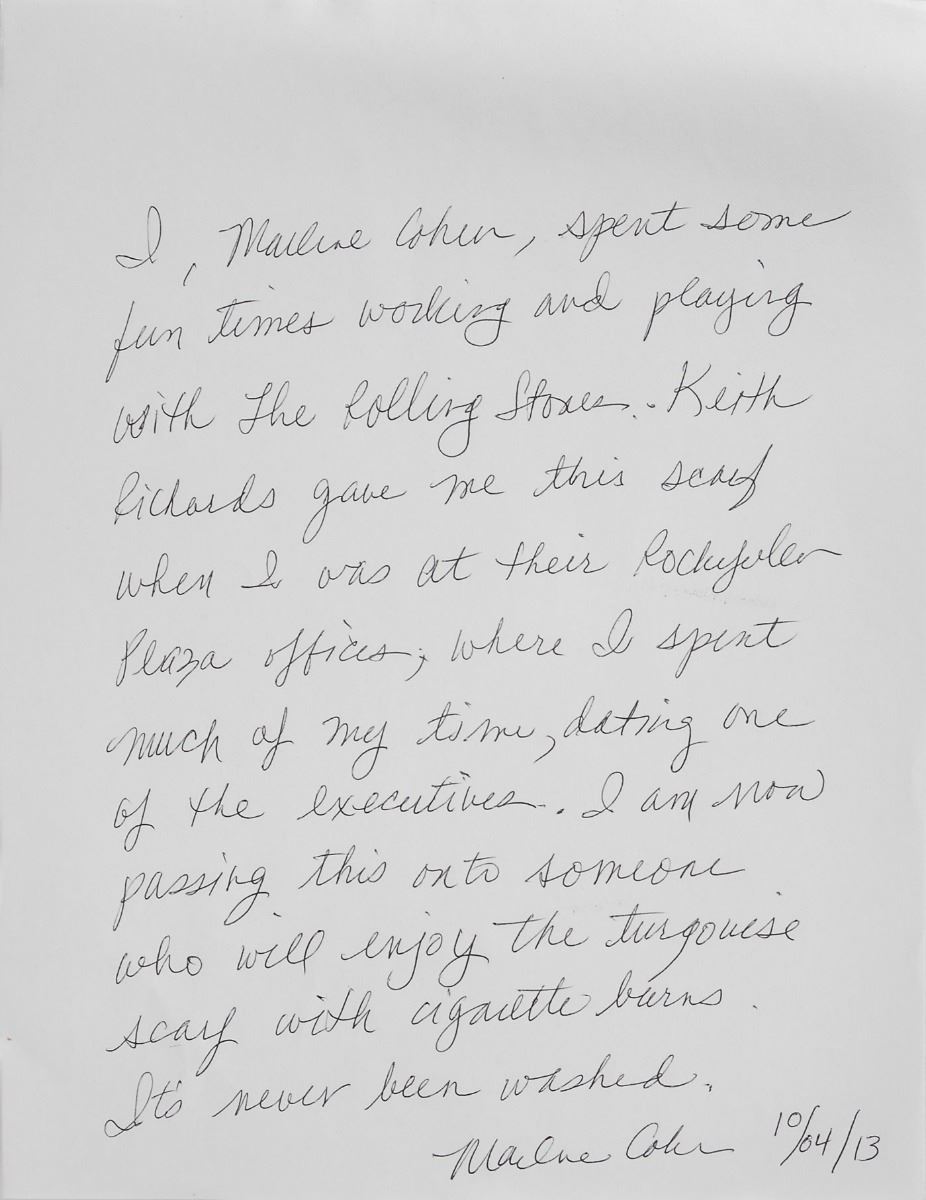 I, Marlene Cohen, spent some
fun times working and playing
with The Rolling Stones. Keith
Richards gave me this scarf
when I was at their Rockefeller
Plaza offices; where I spent
much of my time, dating one
of the executives. I am now
passing this onto someone
who will enjoy the turqouise
scarf with cigarette burns.
It's never been washed.
Marlene Cohen 10/04/13